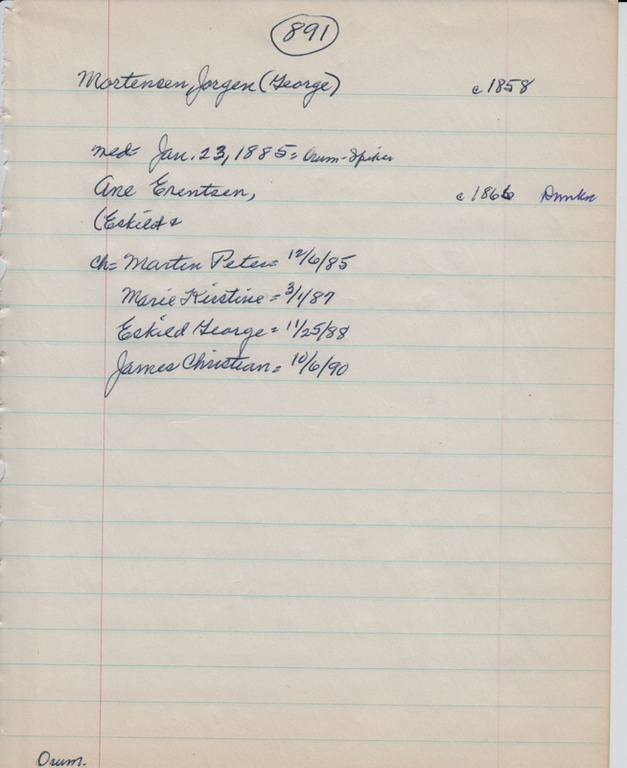 891
Mortensen, Jorgen (George) c 1858
md= Jan. 23, 1885= Orum-Spiker
Ane Erentsen, c 1866
(Eskild &
ch= Martin Peter= 12/6/85
Marie Kirstine = 3/1/87
Eskild George = 11/25/88
James Christian = 10/6/90
Orum.